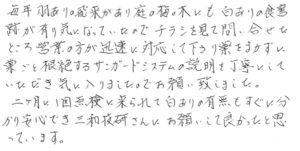 毎年羽ありの飛来があり庭の梅の木にも白ありの食害
跡が有り気になっていたのでチラシを見て問い合せた
ところ営業の方が迅速に対応して下さり巣をまかずに
巣ごと根絶するサンガードシステムの説明も丁寧にして
いただき気に入りましたのでお願い致しました。
二ヶ月に1回点検に来られて白ありの有無もすぐに分
かり安心でき三和技研さんにお願いして良かったと思
っています。